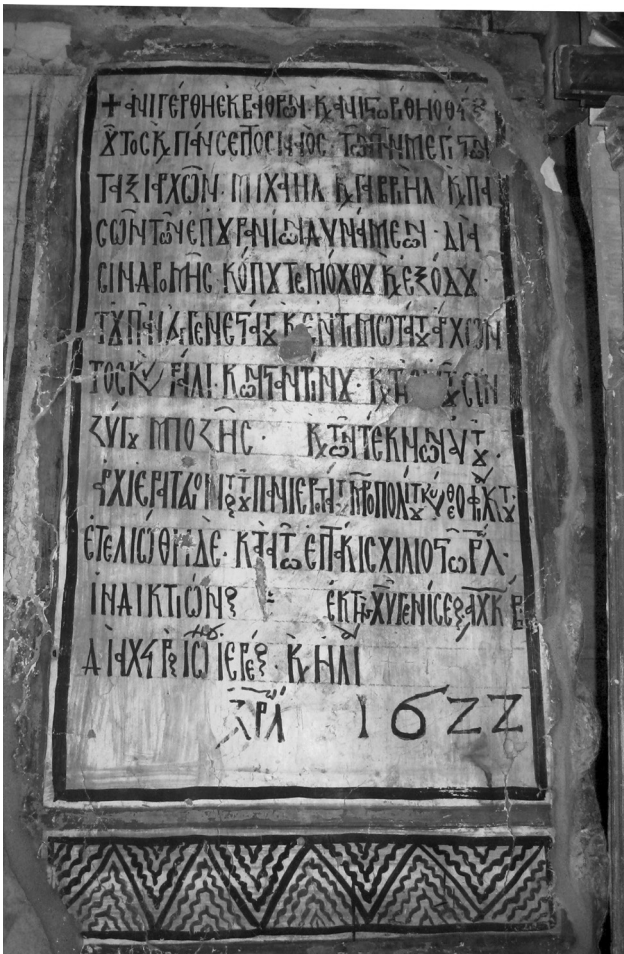 + ΑΝΙΓΕΡΘΗ ΕΚ ΒΑΘΡΩΝ· Κ ΑΝΙϚΩΡΗΘΗ Ο ΘΙ
ΟΥΤΟΣ Κ ΠΑΝΣΕΠΤΟΣ ΝΑΟΣ· ΤΩΝ ΜΕΓΙϚΩΝ
ΤΑΞΙΑΡΧΩΝ· ΜΙΧΑΗΛ Κ ΓΑΒΡΗΛ Κ ΠΑ
ΣΩΝ ΤΩΝ ΕΠΟΥΡΑΝΙΩΝ ΔΥΝΑΜΕΩΝ· ΔΙΑ
ΣΙΝΔΡΟΜΗΣ ΚΟΠΟΥ ΤΕ ΜΟΧΘΟΥ Κ ΕΞΟΔΟΥ·
ΤΟΥ ΕΥΓΕΝΕϚΑΤΟΥ Κ ΕΝΤΙΜΩΤΑΤΟΥ ΑΡΧΩΝ
ΤΟΣ ΚΥ ΚΩΝϚΑΝΤΙΝΟΥ· Κ ΤΗΣ
ΖΥΓΟΥ ΜΠΟΖΗΣ· Κ ΤΩΝ ΤΕΚΝΩΝ ΑΥΤΟΥ
ΑΡΧΙΕΡΑΤΕΒΟΝΤΟΣ ΤΟΥ ΠΑΝΙΕΡΟΤΑΤΟΥ ΜΡΟΠΟΛΙΤΟΥ ΚΥ ΘΕΟΦΑΚΤΟΥ·
ΕΤΕΛΙΩΘΗ ΔΕ· ΚΑΤΑ ΤΟ ΕΠΤΑΚΙΣΧΙΛΙΟϚΩ ΡΛ·
ΙΝΔΙΚΤΙΩΝΟΣ ΕΚ ΤΗΣ ΧΥ ΓΕΝΙΣΕΟΣ ΑΧΚΒ
ΔΙΑ ΧΙΡΟΣ ΙΩ ΙΕΡΕΟΣ· Κ ΗΛΙ
ΖΡΛ 1622